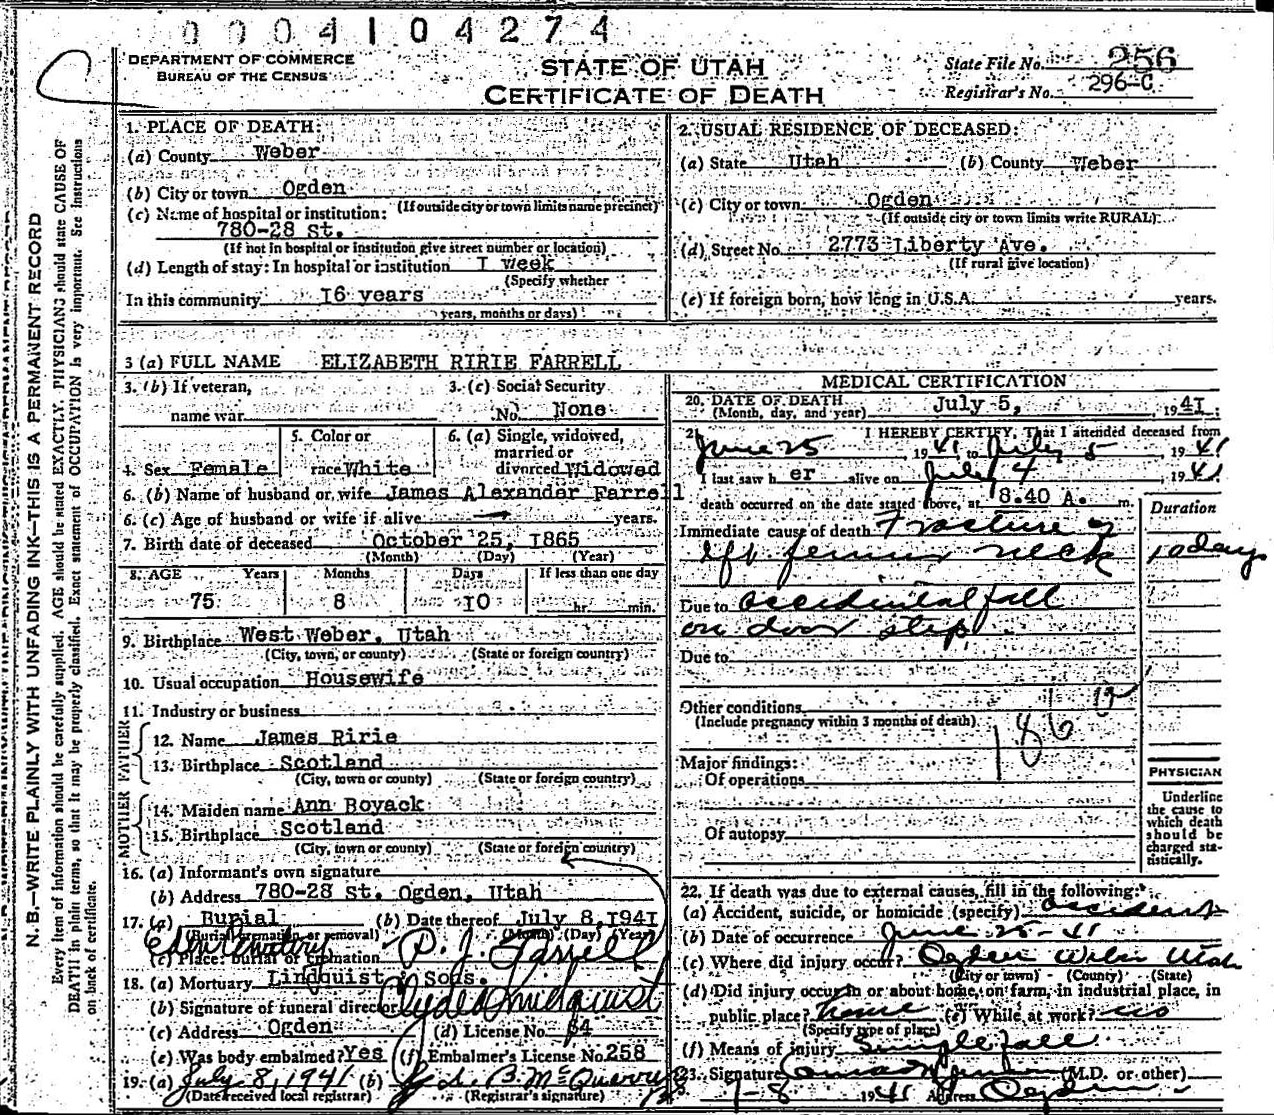 0004104274
DEPARTMENT OF COMMERCE
BUREAU OF THE CENSUS
STATE OF UTAH
CERTIFICATE OF DEATH
State File No. 256
Registrar's No. 296-C
N. B.—WRITE PLAINLY WITH UNFADING INK—THIS IS A PERMANENT RECORD
Every item of information should be carefully supplied. AGE should be stated EXACTLY. PHYSICIANS should state CAUSE OF
DEATH in plain terms, so that it may be properly classified. Exact statement of OCCUPATION is very important. See Instructions
on back of certificate.
1. PLACE OF DEATH:
(a) County Weber
(b) City or town Ogden
(If outside city or town limits name precinct)
(c) Name of hospital or institution:
780-28 St.
(If not in hospital or institution give street number or location)
(d) Length of stay: In hospital or institution I week
(Specify whether
In this community I6 years
years, months or days)
2. USUAL RESIDENCE OF DECEASED:
(a) State Utah (b) County Weber
(c) City or town Ogden
(If outside city or town limits write RURAL)
(d) Street No. 2773 Liberty Ave.
(If rural give location)
(e) If foreign born, how long in U.S.A. years.
3 (a) FULL NAME ELIZABETH RIRIE FARRELL
3. (b) If veteran,
name war
3. (c) Social Security
No. None
4. Sex Female
5. Color or
race White
6. (a) Single, widowed,
married or
divorced Widowed
6. (b) Name of husband or wife James Alexander Farrell
6. (c) Age of husband or wife if alive years.
7. Birth date of deceased October 25, I865
(Month) (Day) (Year)
8. AGE Years Months Days If less than one day
75 8 I0 hr. min.
9. Birthplace West Weber, Utah
(City, town, or county) (State or foreign country)
10. Usual occupation Housewife
11. Industry or business
FATHER
12. Name James Ririe
13. Birthplace Scotland
(City, town or county) (State or foreign country)
MOTHER
14. Maiden name Ann Boyack
15. Birthplace Scotland
(City, town or county) (State or foreign country)
16. (a) Informant's own signature
P. J. Farrell
(b) Address 780-28 St. Ogden, Utah
17. (a) Burial (b) Date thereof July 8, I94I
(Burial, cremation or removal) (Month) (Day) (Year)
(c) Place: burial or cremation
18. (a) Mortuary Lindquist & Sons.
(b) Signature of funeral director Clyde Lindquist
(c) Address Ogden (d) License No. 84
(e) Was body embalmed? Yes (f) Embalmer's License No. 258
19. (a) July 8, 1941 (b)
(Date received local registrar) (Registrar's signature)
MEDICAL CERTIFICATION
20. DATE OF DEATH
(Month, day, and year) July 5, 194I
I HEREBY CERTIFY, That I attended deceased from
June 25 1941 to July 5 1941
I last saw h er alive on July 4 1941
death occurred on the date stated above, at 8.40 A. m.
Duration
Immediate cause of death Fracture of
left femur neck 10 days
Due to accidental fall
on door step
Due to
Other conditions
(Include pregnancy within 3 months of death)
186
Major findings:
Of operations
Of autopsy
PHYSICIAN
Underline
the cause to
which death
should be
charged sta-
tistically.
22. If death was due to external causes, fill in the following:
(a) Accident, suicide, or homicide (specify) accident
(b) Date of occurrence June 25-41
(c) Where did injury occur? Ogden Weber Utah
(City or town) (County) (State)
(d) Did injury occur in or about home, on farm, in industrial place, in
public place? home (e) While at work? no
(Specify type of place)
(f) Means of injury Simple fall
23. Signature (M.D. or other)
7-8 1941 Address Ogden